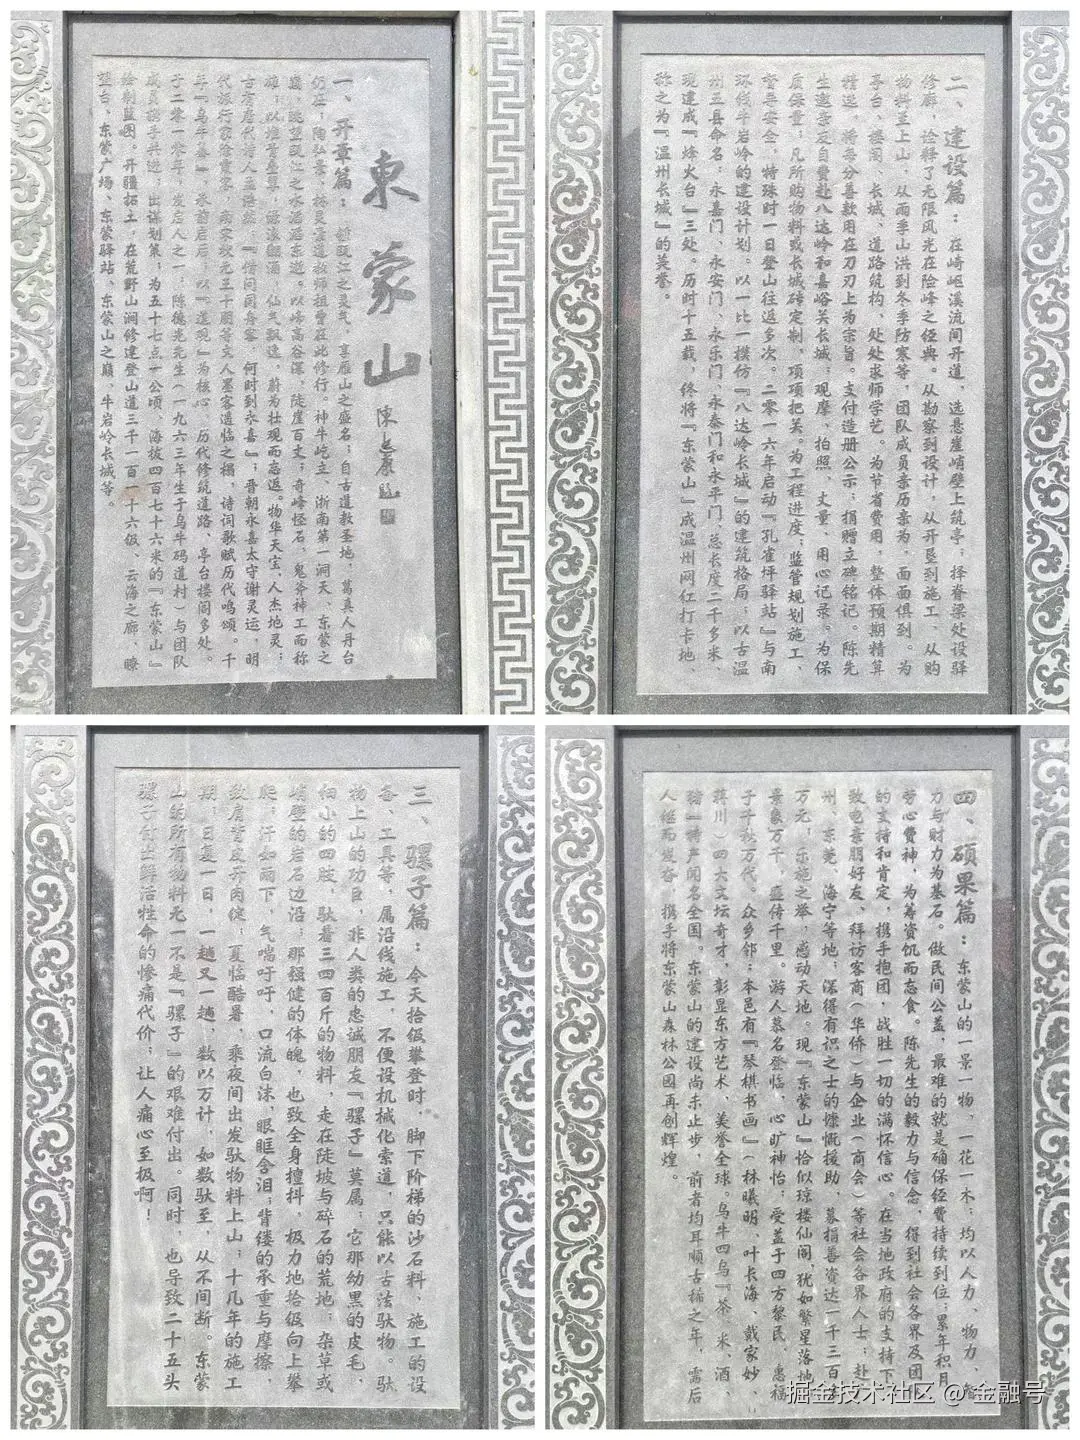 東蒙山
一、开章篇：瓯江之灵气，享雁山之盛名；自古道教圣地，葛真人丹台
仍在；陶弘景、林灵真道教师祖曾在此修行。神牛屹立、浙南第一洞天、东蒙之
巅，眺望瓯江之水滔滔东逝。以峰高谷深，陡崖百丈；奇峰怪石，鬼斧神工而称
雄；以堆雪，绿浪翻涌，仙气飘逸，蔚为壮观而忘返。物华天宝，人杰地灵；
古有唐代诗人孟浩然：『借问同舟客，何时到永嘉』；晋朝永嘉太守谢灵运、明
代旅行家徐霞客，南宋状元王十朋等文人墨客遥临之榻，诗词歌赋历代鸣颂。千
年『乌牛』，承前启后；以『道观』为核心，历代修筑道路、亭台楼阁多处。
于二零一零年，发启人之一：陈德光先生（一九六三年生于乌牛码道村）与团队
成员携手共进；出谋划策；为五十七点一公顷、海拔四百七十六米的『东蒙山』
绘制蓝图。开疆拓土，在荒野山涧修建登山道三千一百一十六级、云海之廊、瞭
望台、东蒙广场、东蒙驿站、东蒙山之巅、牛岩岭长城等。
二、建设篇：在崎岖溪流间开道，选悬崖峭壁上筑亭；择脊梁处设驿
修廊，诠释了无限风光在险峰之经典。从勘察到设计，从开垦到施工、从购
物料至上山，从雨季山洪到冬季防寒等，团队成员亲历亲为，面面俱到。为
亭台、楼阁、长城、道路筑构，处处求师学艺。为节省费用，整体预期精算
精选，将每分善款用在刀刃上为宗旨。支付造册公示；捐赠立碑铭记。陈先
生邀亲友自费赴八达岭和嘉峪关长城；观摩、拍照、丈量、用心记录。为保
质保量；凡所购物料或长城砖定制，项项把关。为工程进度；监管规划施工、
督导安全。特殊时一日登山往返多次。二零一六年启动『孔雀坪驿站』与南
环线牛岩岭的建设计划。以一比一摸仿『八达岭长城』的建筑格局；以古温
州五县命名：永嘉门、永安门、永乐门、永泰门和永平门、总长度二千多米、
现建成『烽火台』三处。历时十五载，终将『东蒙山』成温州网红打卡地
称之为『温州长城』的美誉。
三、骡子篇：今天拾级攀登时，脚下阶梯的沙石料、施工的设
备、工具等，属沿线施工，不便设机械化索道，只能以古法驮物。驮
物上山的功臣，非人类的忠诚朋友『骡子』莫属；它那幼黑的皮毛，
细小的四肢，驮着三四百斤的物料，走在陡坡与碎石的荒地；杂草或
峭壁的岩石边沿；那强健的体魄，也致全身擅抖，极力地拾级向上攀
爬；汗如雨下，气喘吁吁，口流白沫，眼眶含泪；背缕的承重与摩擦，
致肩背皮开肉绽；夏临酷暑，乘夜间出发驮物料上山；十几年的施工
期；日复一日，一趟又一趟，数以万计，如数驮至，从不间断。东蒙
山的所有物料无一不是『骡子』的艰难付出。同时，也导致二十五头
骡子付出鲜活牲命的惨痛代价；让人痛心至极啊！
四、硕果篇：东蒙山的一景一物，一花一木；均以人力、物力、智
力与财力为基石。做民间公益，最难的就是确保经费持续到位；累年积月，
劳心费神，为筹资饥而忘食。陈先生的毅力与信念，得到社会各界及团队
的支持和肯定，携手抱团，战胜一切的满怀信心。在当地政府的支持下，
致电亲朋好友、拜访客商（华侨）与企业（商会）等社会各界人士；赴广
州、东莞、海宁等地；深得有识之士的慷慨援助、募捐善资达一千三百多
万元；乐施之举，感动天地。现『东蒙山』恰似琼楼仙阁，犹如繁星落地；
景象万千，盛传千里。游人慕名登临，心旷神怡；受益于四方黎民，惠福
子千秋万代。众乡邻；本邑有『琴棋书画』（林曦明、叶长海、戴家妙、
蒋川）四大文坛奇才，彰显东方艺术，美誉全球。乌牛四乌『茶、米、酒、
猪』特产闻名全国。东蒙山的建设尚未止步，前者均耳顺古稀之年，需后
人继而发奋，携手将东蒙山森林公园再创辉煌。
掘金技术社区 @ 金融号